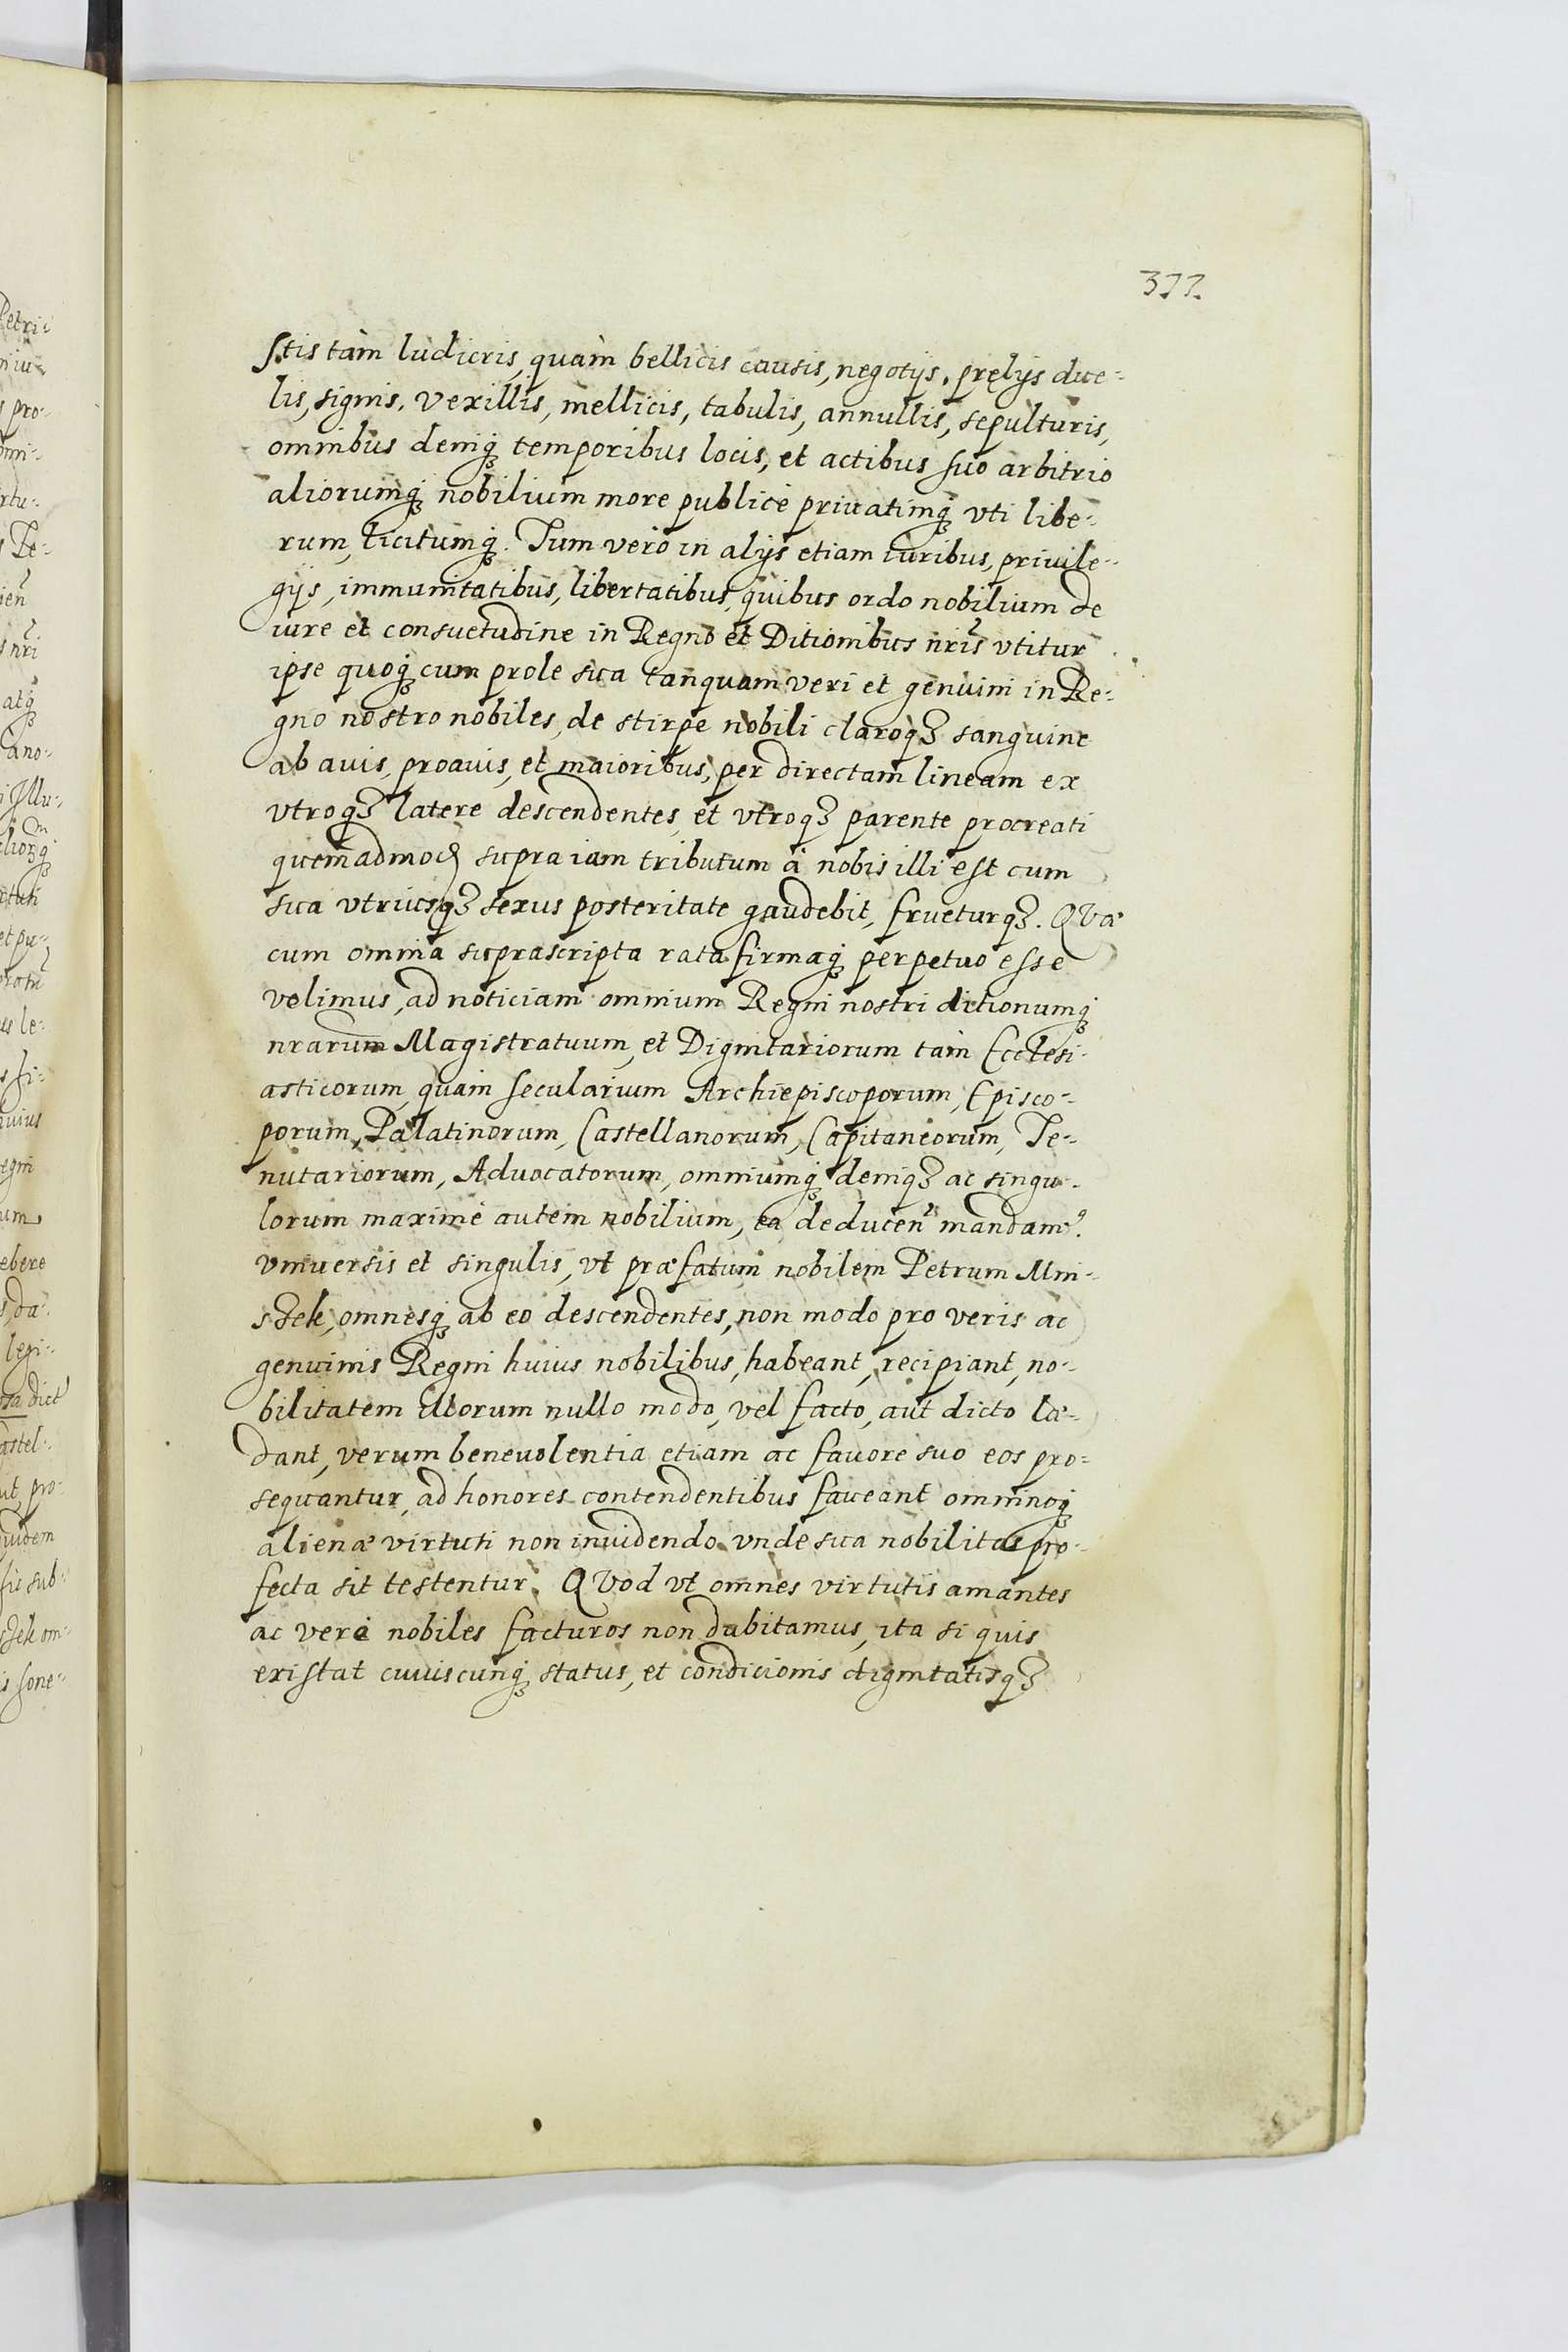 377.
stis tàm ludicris, quàm bellicis causis, negotijs, pręlijs due-
lis, signis, vexillis, mellicis, tabulis, annullis, sepulturis,
omnibus deniqȝ temporibus locis, et actibus suo arbitrio
aliorumqȝ nobilium more publicè priuatimqȝ vti libe-
rum, licitumqȝ. Tum verò in alijs etiam iuribus, priuile-
gijs, immunitatibus, libertatibus, quibus ordo nobilium de
iure et consuetudine in Regno et Ditionibus nris vtitur
ipse quoqȝ cum prole sua tanquam veri et genuini in Re-
gno nostro nobiles, de stirpe nobili claroqȝ sanguine
ab auis, proauis, et maioribus, per directam lineam ex
vtroqȝ latere descendentes, et vtroqȝ parente procreati
quemadmod supra iam tributum à nobis illi est cum
sua vtriusqȝ sexus posteritate gaudebit, frueturqȝ. QVæ
cum omnia suprascripta rata firmaqȝ perpetuo esse
velimus, ad noticiam omnium Regni nostri ditionumqȝ
nrarum Magistratuum, et Dignitariorum tàm Ecclesi-
asticorum, quàm secularium Archiepiscoporum, Episco-
porum, Palatinorum, Castellanorum, Capitaneorum, Te-
nutariorum, Aduocatorum, omniumqȝ deniqȝ ac singu-
lorum maximè autem nobilium, ea deducen mandam9.
vniuersis et singulis, vt præfatum nobilem Petrum Mni-
szek, omnesqȝ ab eo descendentes, non modo pro veris ac
genuinis Regni huius nobilibus, habeant, recipiant, no-
bilitatem illorum nullo modo, vel facto, aut dicto læ-
dant, verum beneuolentia etiam ac fauore suo eos pro-
sequantur, ad honores contendentibus faueant omninoqȝ
alienæ virtuti non inuidendo vnde sua nobilitas pro-
fecta sit testentur. QVod vt omnes virtutis amantes
ac verè nobiles facturos non dubitamus, ita si quis
existat cuiuscunqȝ status, et condicionis dignitatisqȝ